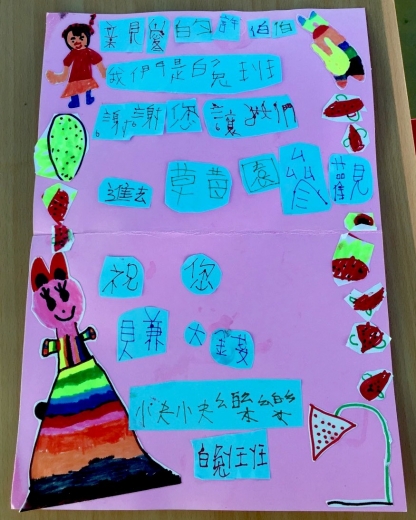 親愛的許伯伯
我們是白兔班
謝謝您讓我們
進去草莓園參觀
祝您
賺大錢
快快樂樂
白兔班